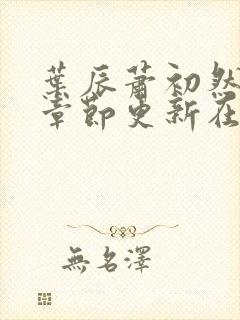 葉辰蕭初然
章節更新在
無名澤